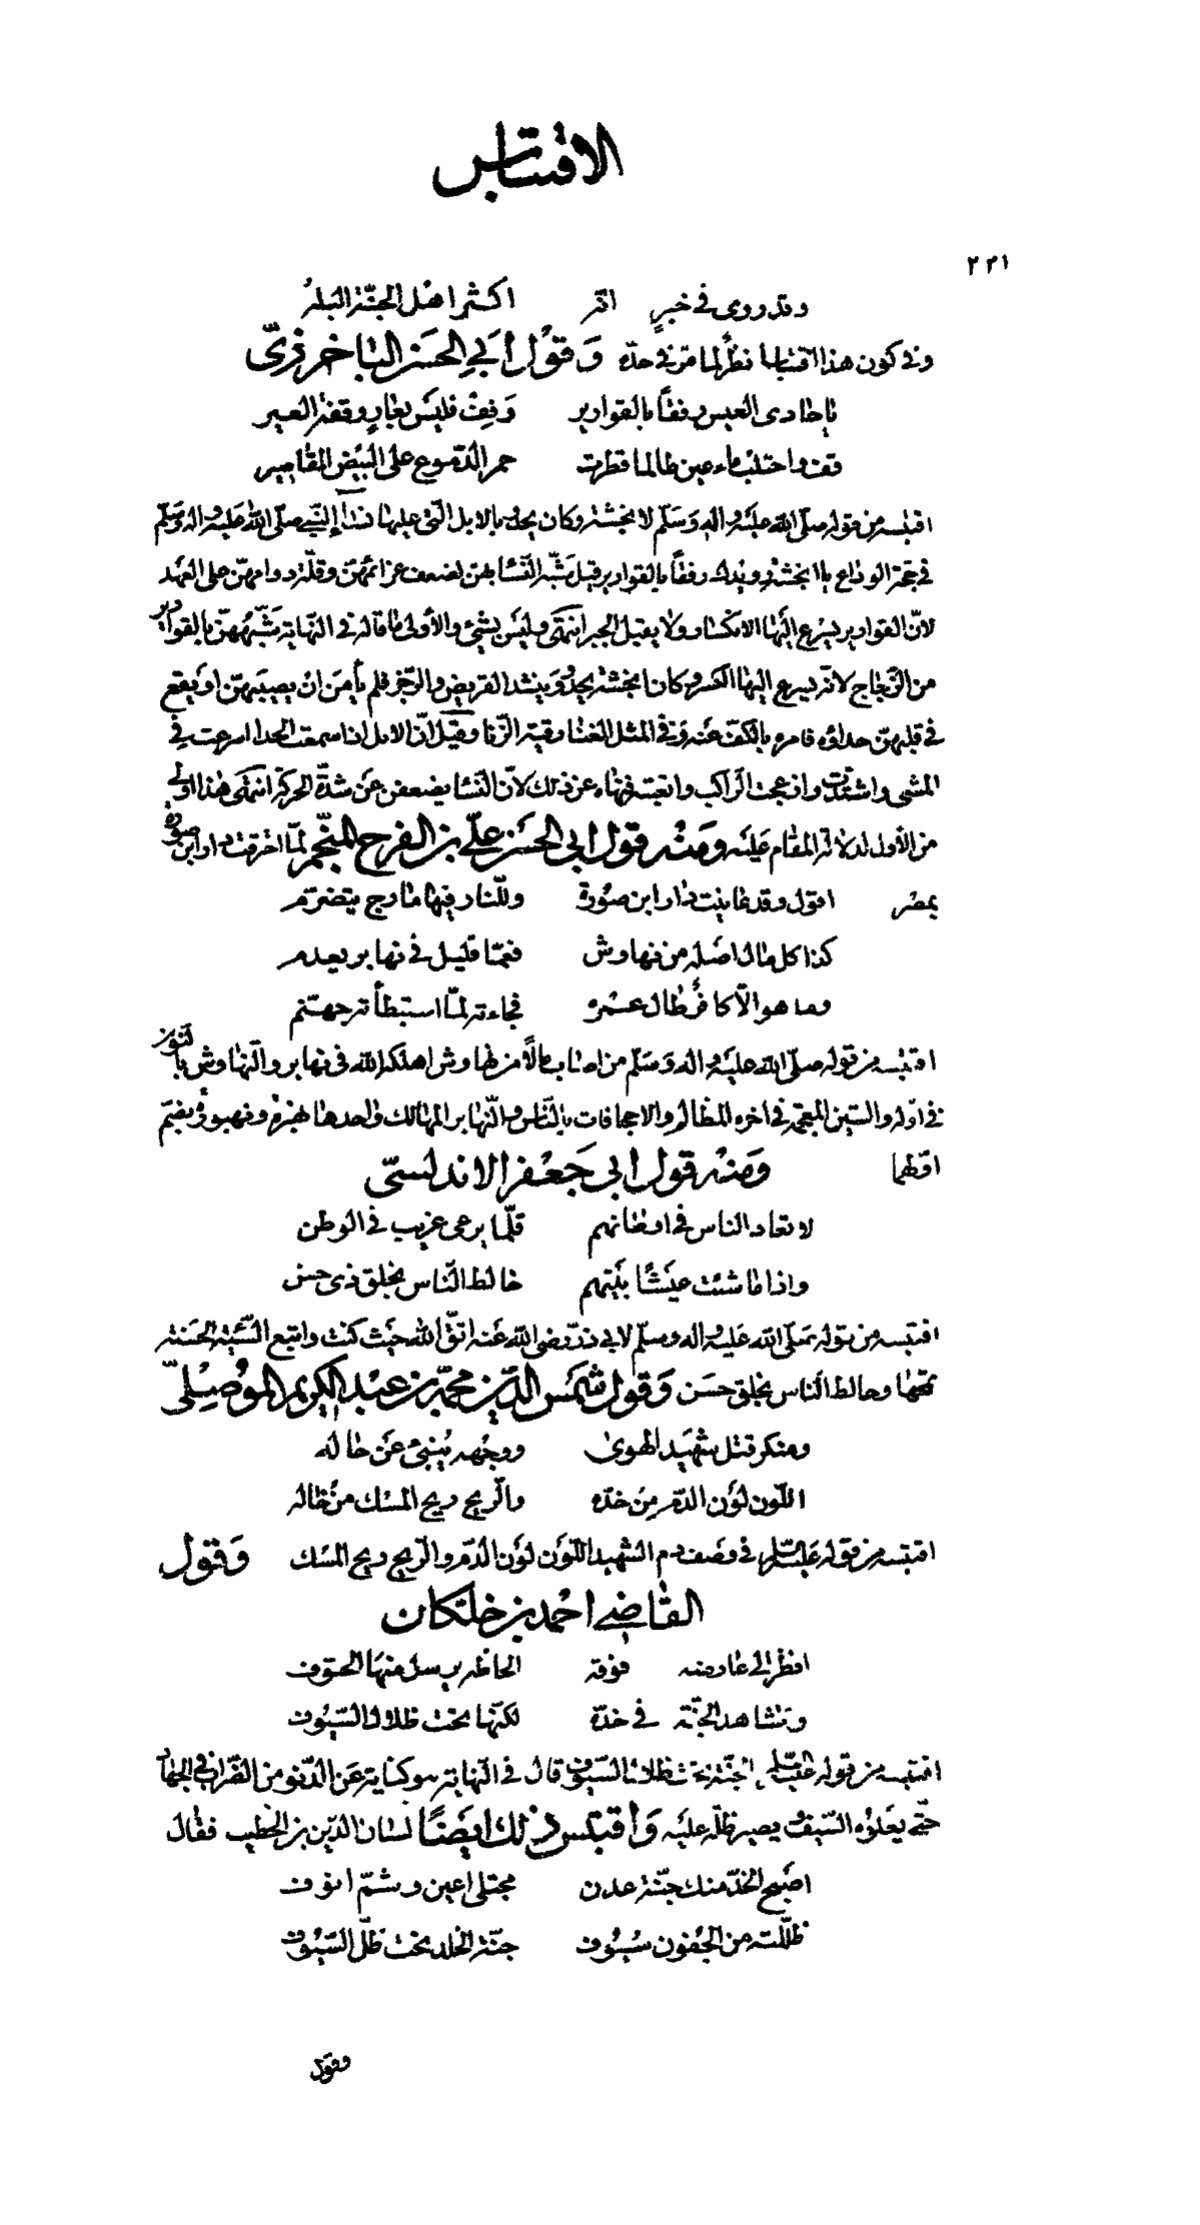 الاقتباس
٢٢١
وقد روى في خبر انه اكثر اهل الجنة البله
وفي كون هذا اقتباسا نظر لما مر في حده وَقَوْل أبي الحَسَن الباخرزيّ
يا حادى العيس رفقاً بالقوارير وَقِفْ فليس بعارٍ وقفة العير
قف واحتلب ماء عين طالما قطرت حمر الدّموع على البيض المقاصير
اقتبسه من قوله صلّى الله عليه واله وسلّم لا نجشة وكان يحدو بالابل الّتى عليها نساء النّبي صلّى الله عليه واله وسلّم
في حجة الوداع يا انجشة رويدك رفقاً بالقوارير قيل شبّه النّسا بهن لضعف عزائمهنّ وقلّة دوامهنّ على العهد
لانّ القوارير يسرع اليها الانكسار ولا يقبل الجبر انتهى وليس بشئ والأولى ما قاله في النّهاية شبّههنّ بالقوارير
من الزّجاج لانّه يسرع اليها الكسر وكان انجشة يحدُو وينشد القريض والرّجز فلم يأمن ان يصيبهنّ او يقع
في قلبهنّ حداؤه فامره بالكفّ عنه وفي المثل الغنا رقية الزّنا وقيل انّ الابل اذا سمعت الحدا اسرعت في
المشى واشتدّت وازعجت الرّاكب واتعبته فنهاه عن ذلك لانّ النّسا يضعفن عن شدّة الحركة انتهى هذا اولى
من الأول لدلالة المقام عليه ومنه قول ابى الحسن علىّ بن الفرج المنجّم لمّا احترقت دار ابن صورة
بمصر اقول وقد عاينت دار ابن صُورة وللنّار فيها مارج يتضرّم
كذا كل مال اصله من نهاوش فعمّا قليل في نهابر يعدم
وما هو الّا كافرٌ طال عمره فجاءته لمّا استبطأته جهنّم
اقتبسه من قوله صلّى الله عليه واله وسلّم من اصاب مالاً من نهاوش اهلكه الله في نهابر والنّهاوش بالنون
في اوّله والشين المعجمة في اخره المظالم والاجحافات بالنّاس والنّهابر المهالك واحدها نهبرة ونهبورة بضم
اوّلهما ومنه قول ابى جَعفر الاندلسىّ
لا تعاد الناس في اوطانهم قلّما يرعى غريب في الوطن
واذا ما شئت عيشًا بينهم خالط النّاس بخلق ذى حسن
اقتبسه من قوله صلّى الله عليه واله وسلّم لابي ذرّ رضى الله عنه اتقّ الله حيث كنت واتبع السّيئة الحسنة
تمحها وخالط النّاس بخلق حسن وَقول شمس الدّين محمّد بن عبد الكريم الموصِلىّ
ومنكر قتل شهيد الهوى ووجهه يُنبئ عن حاله
اللّون لون الدّم من خدّه والرّيح ريح المسك من خاله
اقتبسه من قوله عليه السّلم في وصف دم الشهيد اللّون لون الدّم والرّيح ريح المسك وَقول
القاضى احمد بن خلّكان
انظر الى عارضه فوقه الحاظه يرسل منها الحتوف
وتشاهد الجنّة في خدّه لكنّها تحت ظلال السّيوف
اقتبسه من قوله عليه السّلم الجنّة تحت ظلال السّيوف قال في النّهاية هو كناية عن الدّنو من القراب في الجهاد
حتّى يعلوه السّيف يصير ظلّه عليه وَاقتبس ذلك ايضًا لسان الدّين بن الخطيب فقال
اصبح الخدّ منك جنّة عدن مجتلى اعين وشمّ انوف
ظلّلته من الجفون سُيُوف جنّة الخلد تحت ظلّ السّيوف
وقول